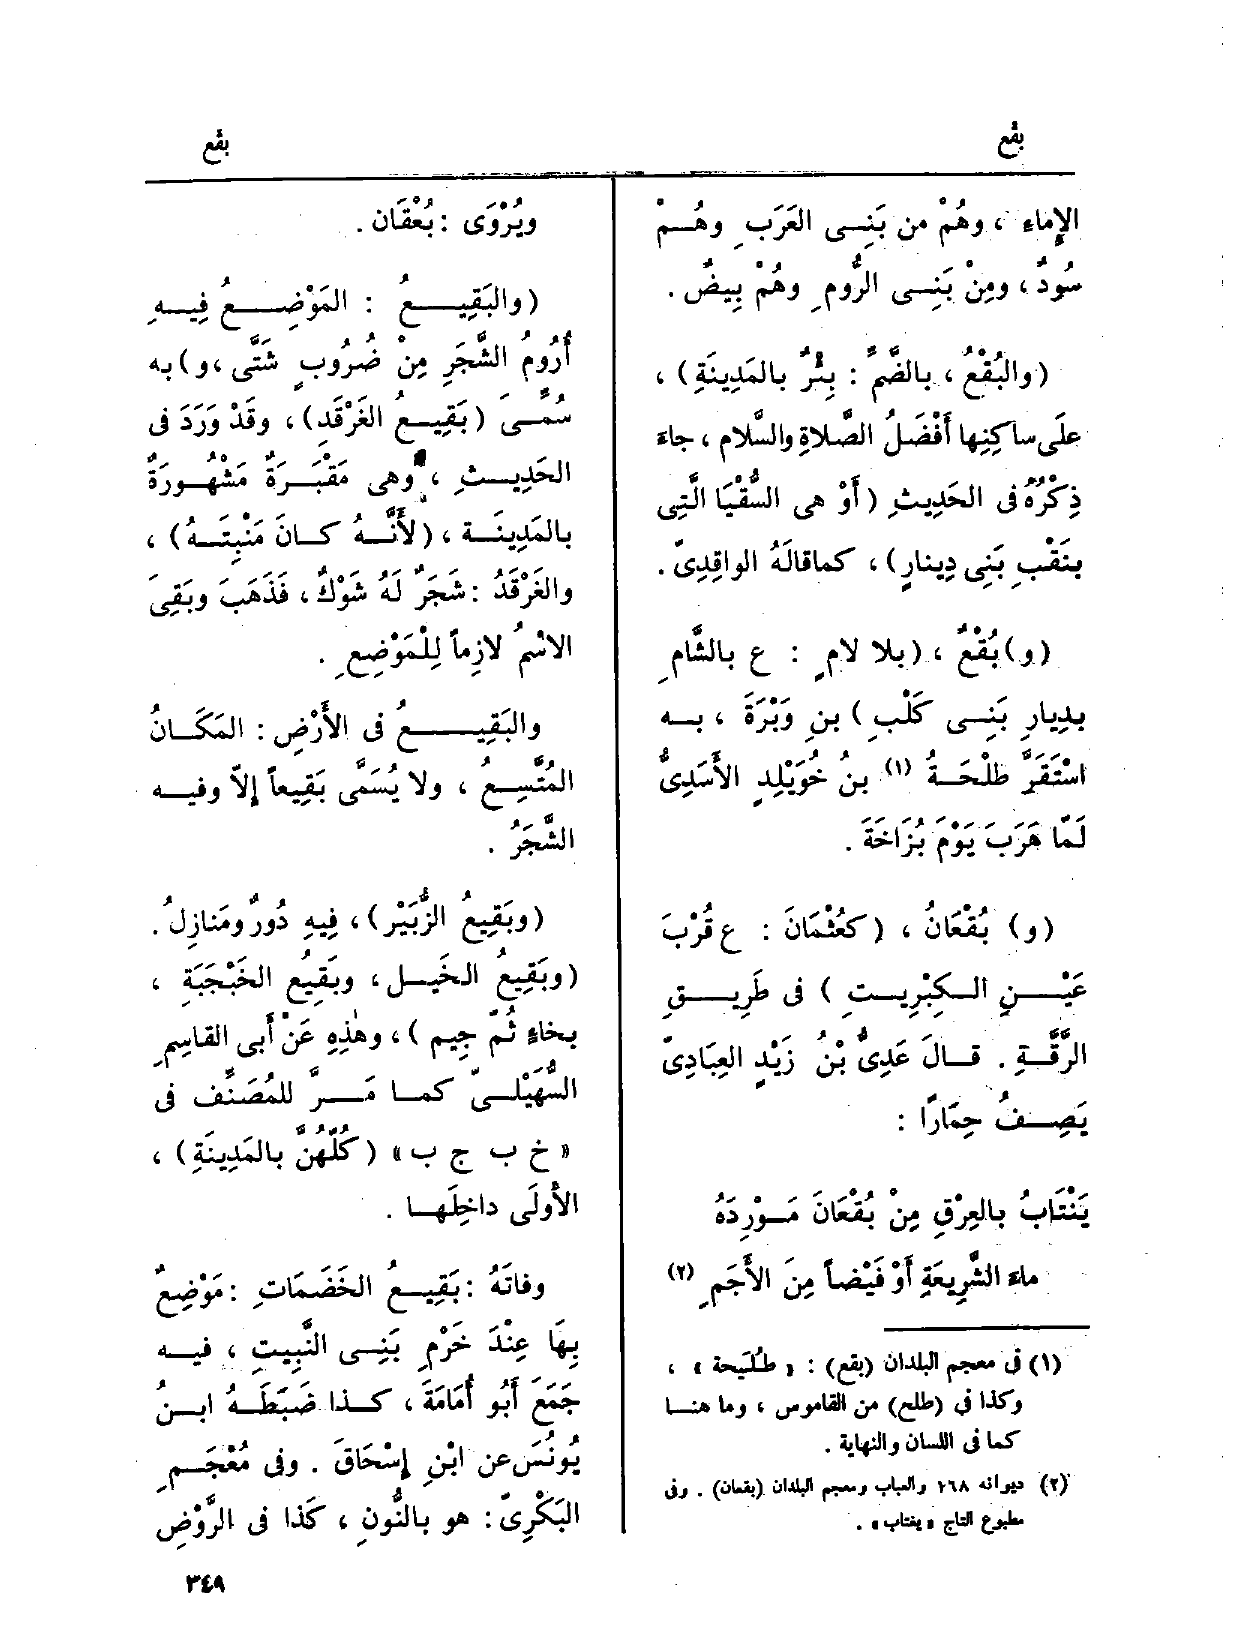 بقع
بقع
الإماء ، وهُمْ من بَنِى العَرَبِ وهُمْ
سُودٌ ، ومِنْ بَنِى الرُّومِ وهُمْ بِيضٌ .
(والبُقْعُ ، بالضَّمِّ : بِئْرٌ بالمَدِينَةِ) ،
علَى ساكِنِها أَفْضَلُ الصَّلاةِ والسَّلام ، جاءَ
ذِكْرُهُ فى الحَدِيثِ (أَوْ هى السُّقْيَا الَّتِى
بنَقْبِ بَنِى دِينارٍ) ، كماقالَهُ الواقِدِىّ .
(و) بُقْعٌ ، (بلا لامٍ : ع بالشَّامِ
بدِيارِ بَنِى كَلْبِ) بنِ وَبْرَةَ ، بـه
اسْتَقَرَّ طَلْحَةُ (١) بنُ خُوَيْلِدٍ الأَسَدِىُّ
لَمّا هَرَبَ يَوْمَ بُزَاخَةَ .
(و) بُقْعَانُ ، (كعُثْمَانَ : ع قُرْبَ
عَيْنِ الكِبْرِيتِ ) فى طَرِيقِ
الرَّقَّةِ . قالَ عَدِىُّ بْنُ زَيْدٍ العِبَادِىّ
يَصِفُ حِمَارًا :
يَنْتَابُ بالعِرْقِ مِنْ بُقْعَانَ مَوْرِدَهُ
ماءَ الشَّرِيعَةِ أَوْ فَيْضاً مِنَ الأَجَمِ (٢)
(١) فى معجم البلدان (بقع) : « طُلَيحة » ،
وكذا فى (طلح) من القاموس ، وما هنا
كما فى اللسان والنهاية .
(٢) ديوانه ١٦٨ والعباب ومعجم البلدان (بقعان) . وفى
مطبوع التاج « يفتاب » .
ويُرْوَى : بُعْقَان .
(والبَقِيعُ : المَوْضِعُ فِيهِ
أُرُومُ الشَّجَرِ مِنْ ضُرُوبٍ شَتَّى ، و) به
سُمِّىَ (بَقِيعُ الغَرْقَدِ) ، وقَدْ وَرَدَ فى
الحَدِيثِ ، وهى مَقْبَرَةٌ مَشْهُورَةٌ
بالمَدِينَة ، (لأَنَّهُ كانَ مَنْبِتَهُ) ،
والغَرْقَدُ : شَجَرٌ لَهُ شَوْكٌ ، فَذَهَبَ وبَقِىَ
الاسْمُ لازِماً لِلْمَوْضِعِ .
والبَقِيعُ فى الأَرْضِ : المَكَانُ
المُتَّسِعُ ، ولا يُسَمَّى بَقِيعاً إِلاّ وفيه
الشَّجَرُ .
(وبَقِيعُ الزُّبَيْرِ) ، فِيهِ دُورٌ ومَنازِلُ .
(وبَقِيعُ الخَيْلِ ، وبَقِيعُ الخَبْجَبَةِ ،
بخاءٍ ثُمّ جِيم ) ، وهٰذِهِ عَنْ أَبى القاسِمِ
السُّهَيْلِىّ كما مَرَّ للمُصَنِّف فى
« خ ب ج ب » (كُلُّهُنَّ بالمَدِينَةِ) ،
الأُولَى داخِلَها .
وفاتَهُ : بَقِيعُ الخَضَمَاتِ : مَوْضِعٌ
بِهَا عِنْدَ خَرْمِ بَنِى النَّبِيتِ ، فيه
جَمَعَ أَبُو أُمَامَةَ ، كذا ضَبَطَهُ ابنُ
يُونُسَ عن ابْنِ إِسْحَاقَ . وفى مُعْجَمِ
البَكْرِىّ : هو بالنُّونِ ، كَذا فى الرَّوْضِ
٣٤٩